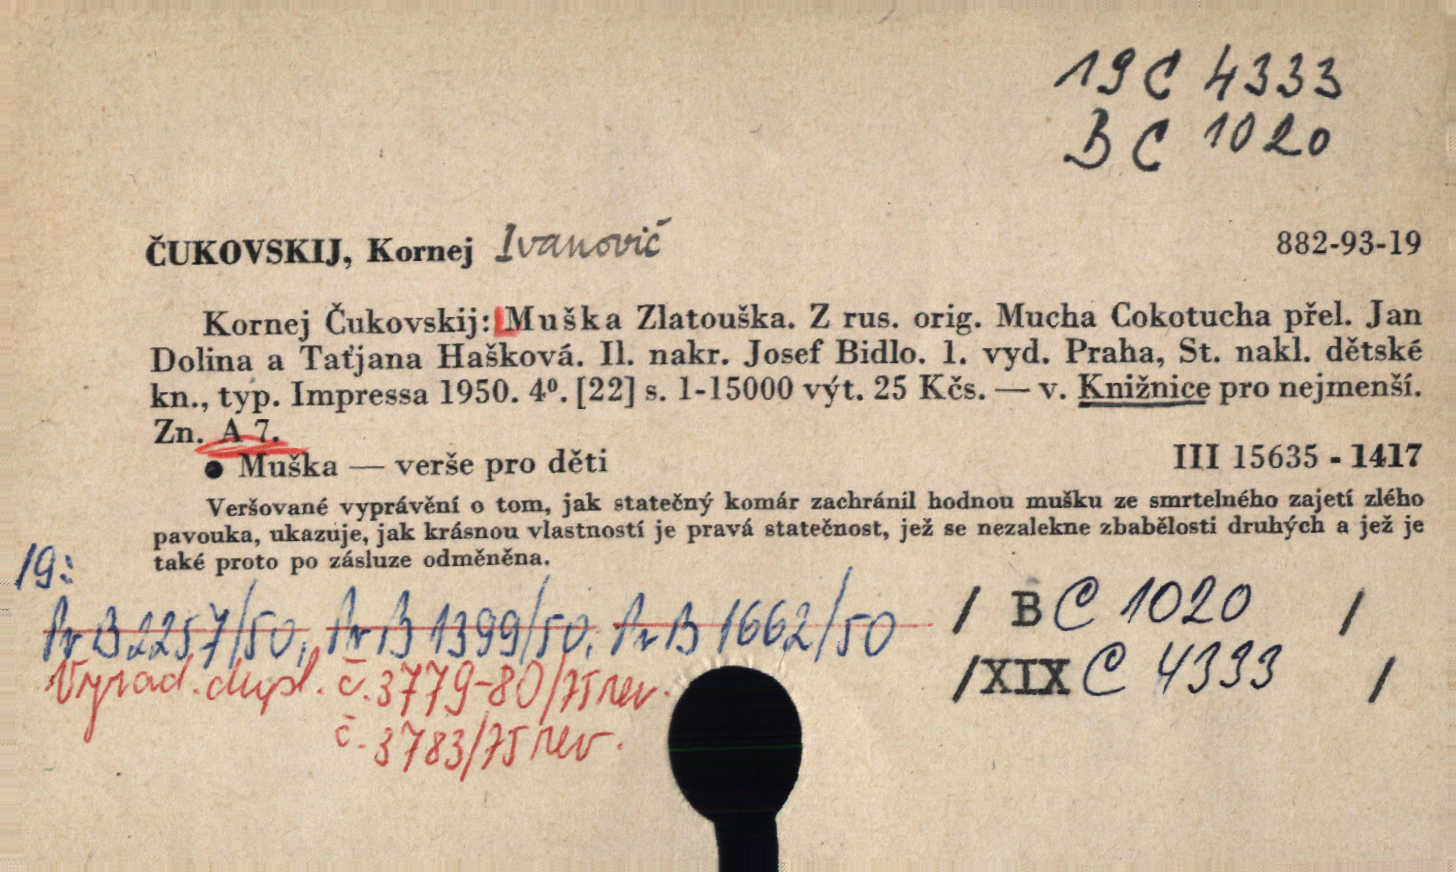 19 C 4333
B C 1020
ČUKOVSKIJ, Kornej Ivanovič 882-93-19
Kornej Čukovskij: Muška Zlatouška. Z rus. orig. Mucha Cokotucha přel. Jan
Dolina a Taťjana Hašková. Il. nakr. Josef Bidlo. 1. vyd. Praha, St. nakl. dětské
kn., typ. Impressa 1950. 4⁰. [22] s. 1-15000 výt. 25 Kčs. — v. Knižnice pro nejmenší.
Zn. A 7.
● Muška — verše pro děti III 15635 - 1417
Veršované vyprávění o tom, jak statečný komár zachránil hodnou mušku ze smrtelného zajetí zlého
pavouka, ukazuje, jak krásnou vlastností je pravá statečnost, jež se nezalekne zbabělosti druhých a jež je
také proto po zásluze odměněna.
19:
Pr B 2257/50, Pr B 1399/50, Pr B 1662/50 / B C 1020 /
Vyřad. dupl. č. 3779-80/75 rev. /XIX C 4333 /
č. 3783/75 rev.